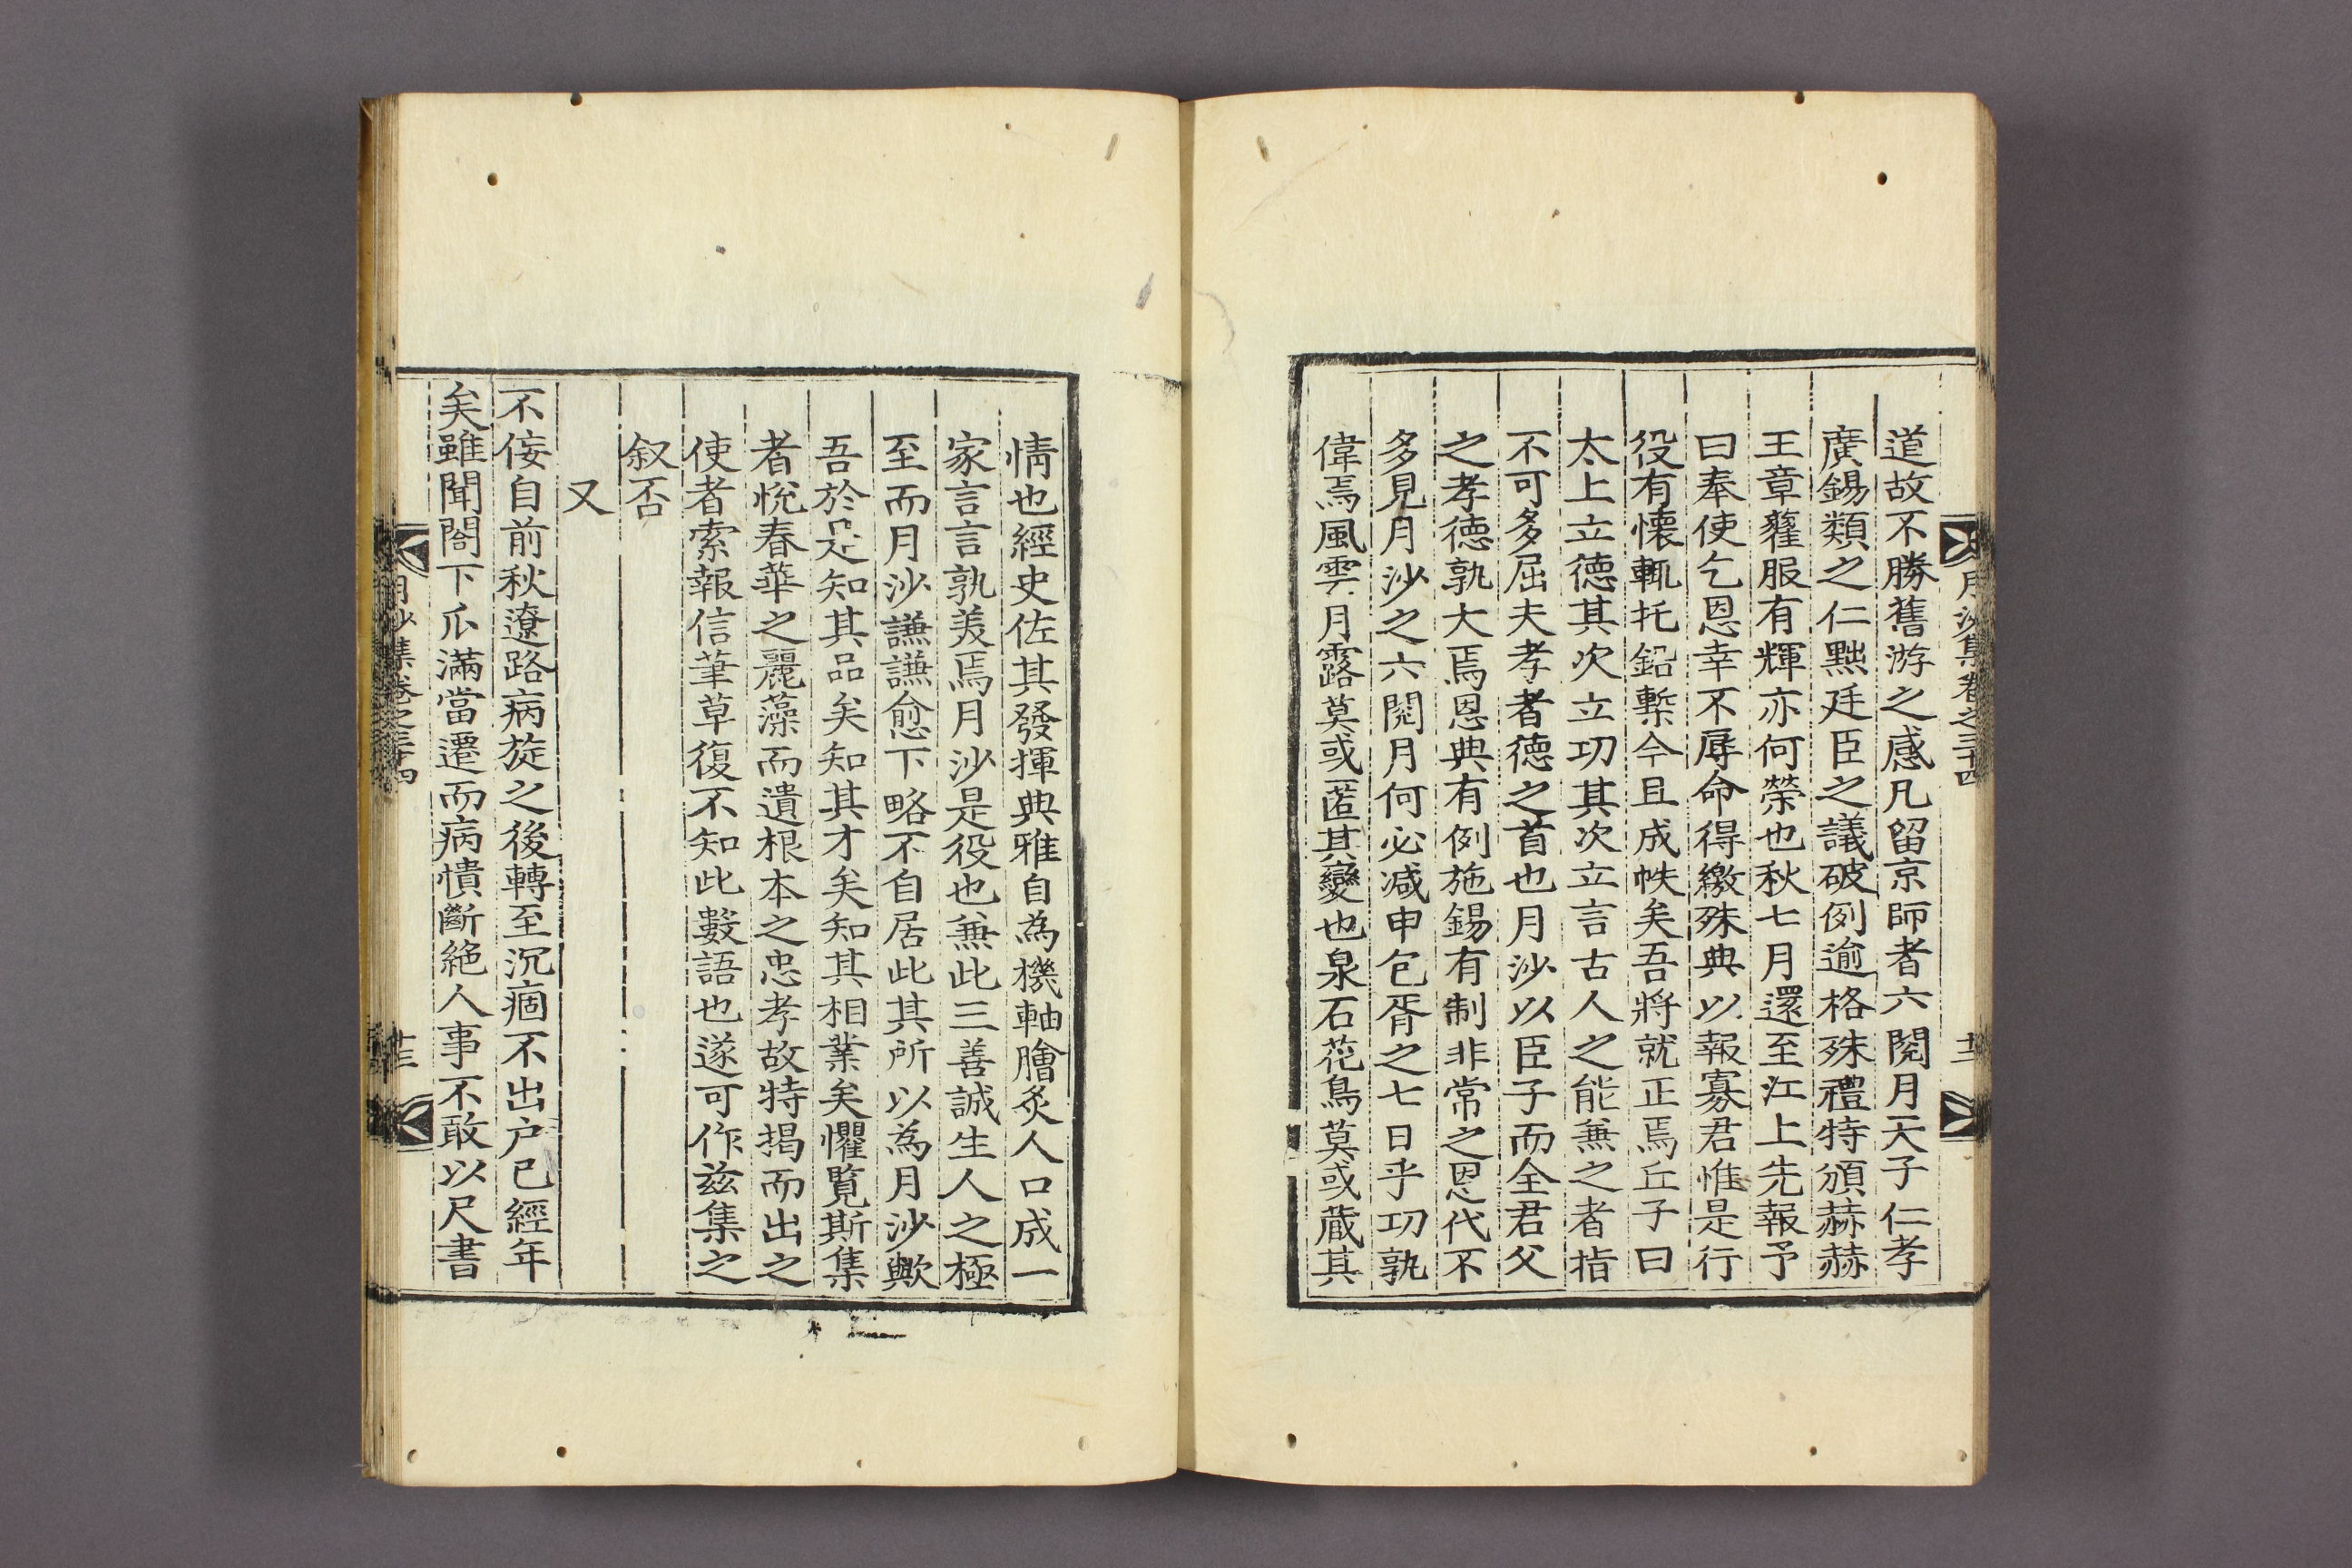 月沙集卷之三十四
十二
道故不勝舊游之感凡留京師者六閱月天子仁孝
廣錫類之仁黜廷臣之議破例逾格殊禮特頒赫赫
王章蘿服有輝亦何榮也秋七月還至江上先報予
曰奉使乞恩幸不辱命得繳殊典以報寡君惟是行
役有懷輒托鉛槧今且成帙矣吾將就正焉丘子曰
太上立德其次立功其次立言古人之能兼之者指
不可多屈夫孝者德之首也月沙以臣子而全君父
之孝德孰大焉恩典有例施錫有制非常之恩代不
多見月沙之六閱月何必减申包胥之七日乎功孰
偉焉風雲月露莫或匿其變也泉石花鳥莫或蔵其
情也經史佐其發揮典雅自為機軸膾炙人口成一
家言言孰羙焉月沙是役也兼此三善誠生人之極
至而月沙謙謙愈下略不自居此其所以為月沙歟
吾於是知其品矣知其才矣知其相業矣懼覽斯集
者悅春華之麗藻而遺根本之忠孝故特揭而出之
使者索報信筆草復不知此數語也遂可作兹集之
叙否
又
不佞自前秋遼路病旋之後轉至沉痼不出户已經年
矣雖聞閤下瓜滿當遷而病憒斷絶人事不敢以尺書
月沙集卷之三十四
十三